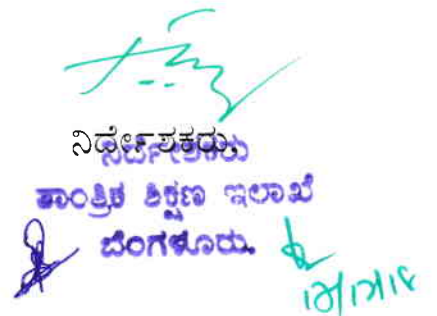 ನಿರ್ದೇಶಕರು,
ನಿರ್ದೇಶಕರು
ತಾಂತ್ರಿಕ ಶಿಕ್ಷಣ ಇಲಾಖೆ
ಬೆಂಗಳೂರು.